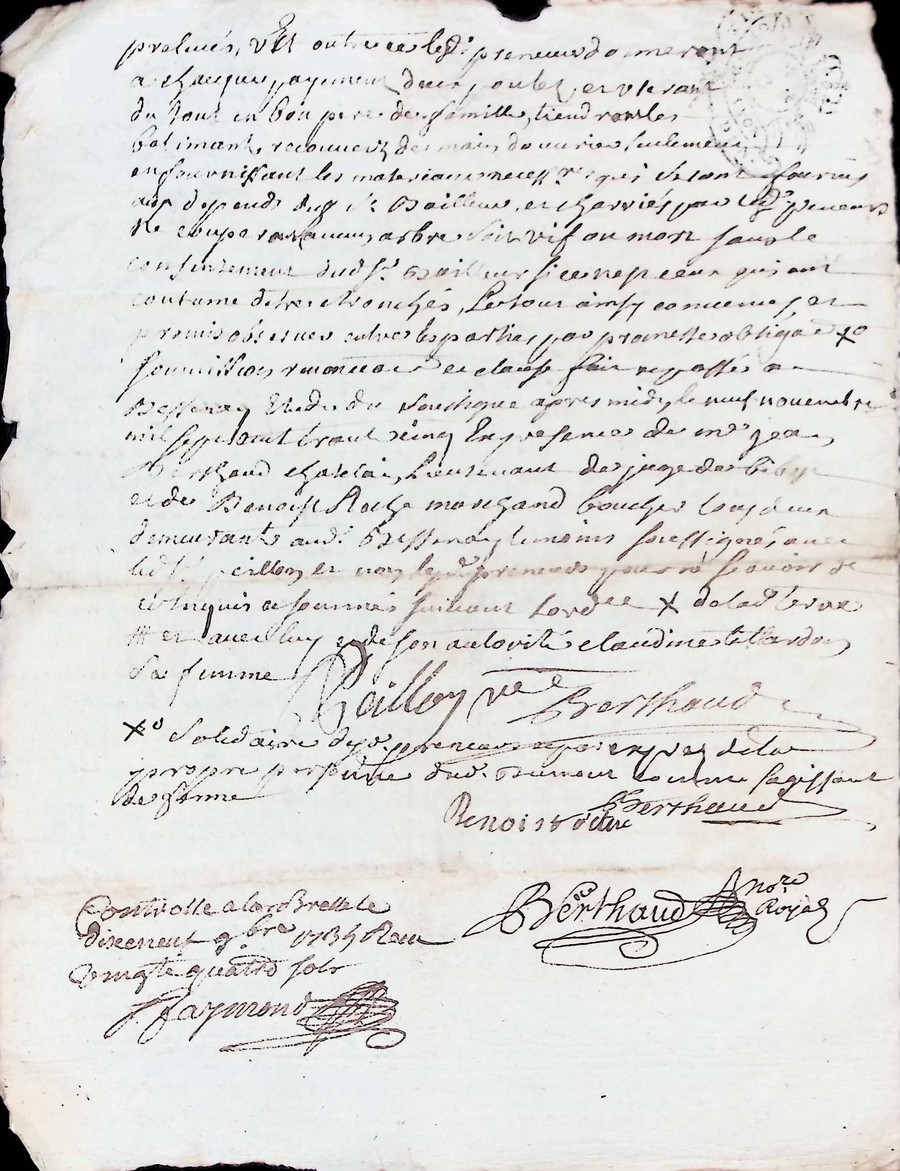 prelevés, Et outre ce led. preneur donneront
a chacque payement deux poulet, et useront
du tout en bon pere de famille, tiendront les
batimants recouvert de mains d'ouvrier seulement
en fournissant les materiaux necess.res qui seront fournis
aux depends dud. Sr. Bailleur, et charriés par led. preneurs
Ne couperont aucuns arbre soit vif ou mort sans le
consentement dud Sr. Bailleur si ce nest ceux qui ont
coutume detre etronchés, Le tout ainsy convenu, et
promis observer entre les parties par promesse obligaõn xo
soumissions renonciaõns et clause fait et passés a
Bessenay Etude du soussigné apres midy le neuf novembre
mil sept cent trente cinq En presence de me jean
Berthaud chastelain, Lieutenant de juge de Bibost
et de Benoist Roche marchand boucher tous deux
demeurants aud. Bessenay temoins soussignés avec
led Sr. peillon et non led. preneurs pour ne sçavoir de
ce enquis et sommés suivant Lord.ce X de lad. terre
# et avec luy et de son autorité claudine tillardon
Sa femme Peillon Berthaud
xo Solidaire desd. preneurs
propre dud. comme sagissant
de ferme Berthaud
Benoist
Controlle a larbrelle le
dixeneuf 9bre 1735 Receu
vingte quatre sols
Raymond
Berthaud nore
Royal